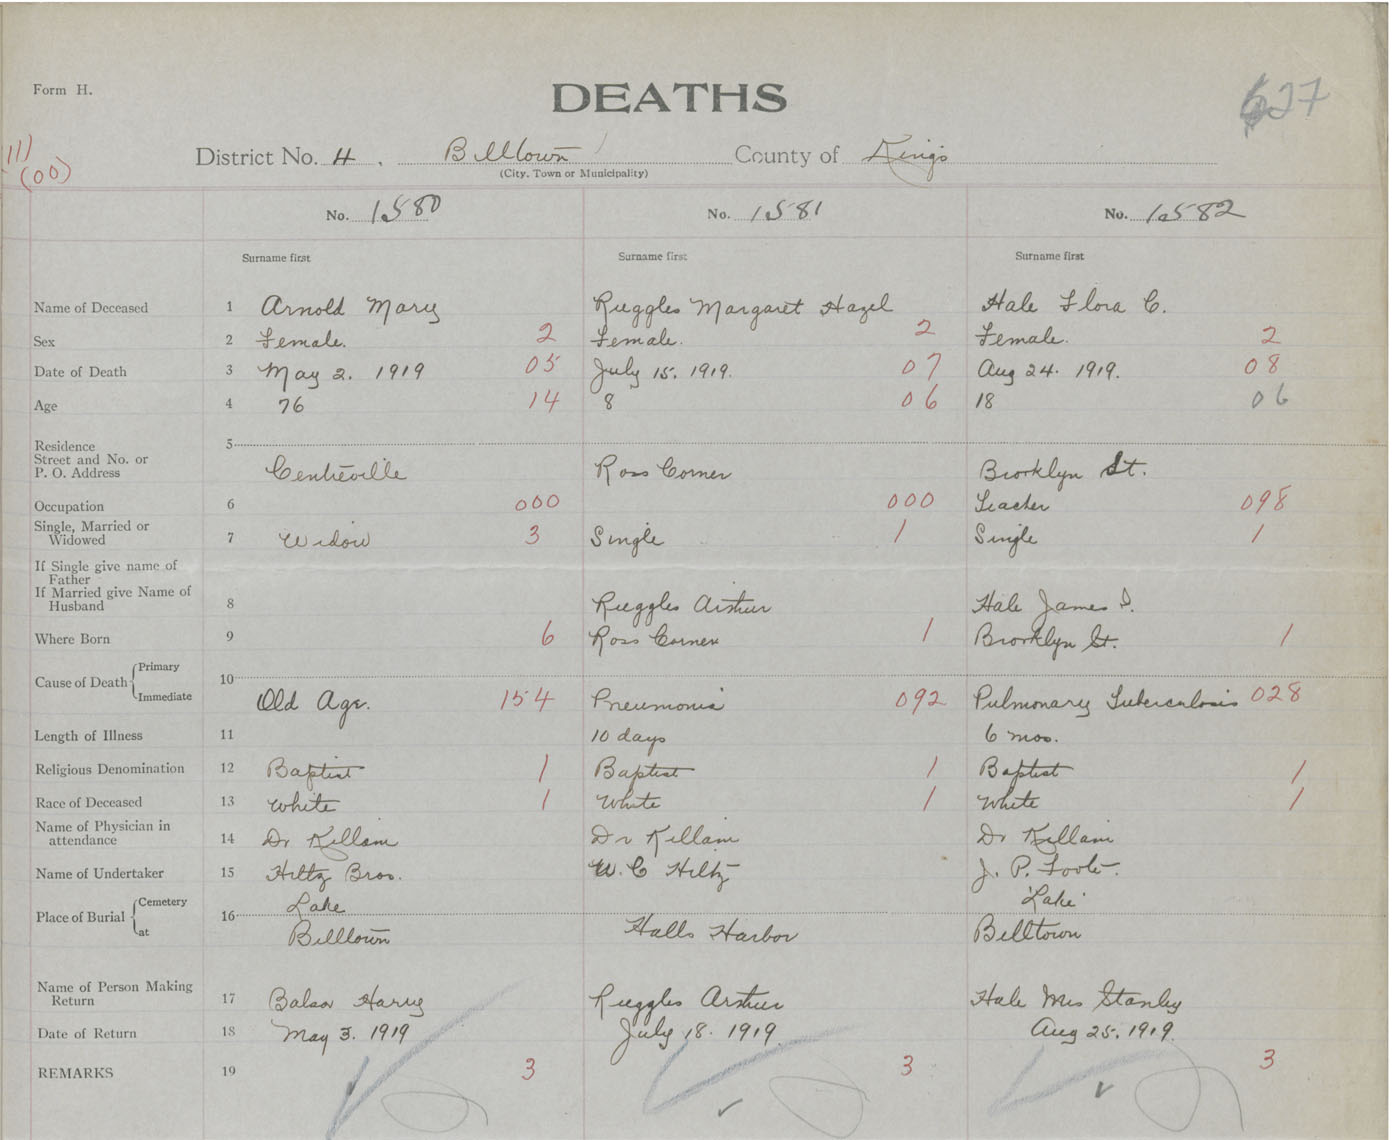 Form H.
DEATHS
627
111
(00)
District No. 4. Billtown County of Kings
(City, Town or Municipality)
No. 1580 No. 1581 No. 1582
Surname first Surname first Surname first
Name of Deceased 1 Arnold Mary Ruggles Margaret Hazel Hale Flora C.
Sex 2 Female. 2 Female. 2 Female. 2
Date of Death 3 May 2. 1919 05 July 15. 1919. 07 Aug 24. 1919. 08
Age 4 76 14 8 06 18 06
Residence 5
Street and No. or
P. O. Address Centreville Ross Corner Brooklyn St.
Occupation 6 000 000 Teacher 098
Single, Married or
Widowed 7 Widow 3 Single 1 Single 1
If Single give name of
Father
If Married give Name of
Husband 8 Ruggles Arthur Hale James I.
Where Born 9 6 Ross Corner 1 Brooklyn St. 1
Cause of Death Primary 10
Immediate Old Age. 154 Pneumonia 092 Pulmonary Tuberculosis 028
Length of Illness 11 10 days 6 mos.
Religious Denomination 12 Baptist 1 Baptist 1 Baptist 1
Race of Deceased 13 White 1 White 1 White 1
Name of Physician in
attendance 14 Dr Killam Dr Killam Dr Killam
Name of Undertaker 15 Hiltz Bros. W. C Hiltz J. P. Foote.
Place of Burial Cemetery 16 Lake 'Lake'
at Billtown Halls Harbor Billtown
Name of Person Making
Return 17 Balsor Harry Ruggles Arthur Hale Mrs Stanley
Date of Return 18 May 3. 1919 July 18. 1919. Aug 25. 1919.
REMARKS 19 3 3 3